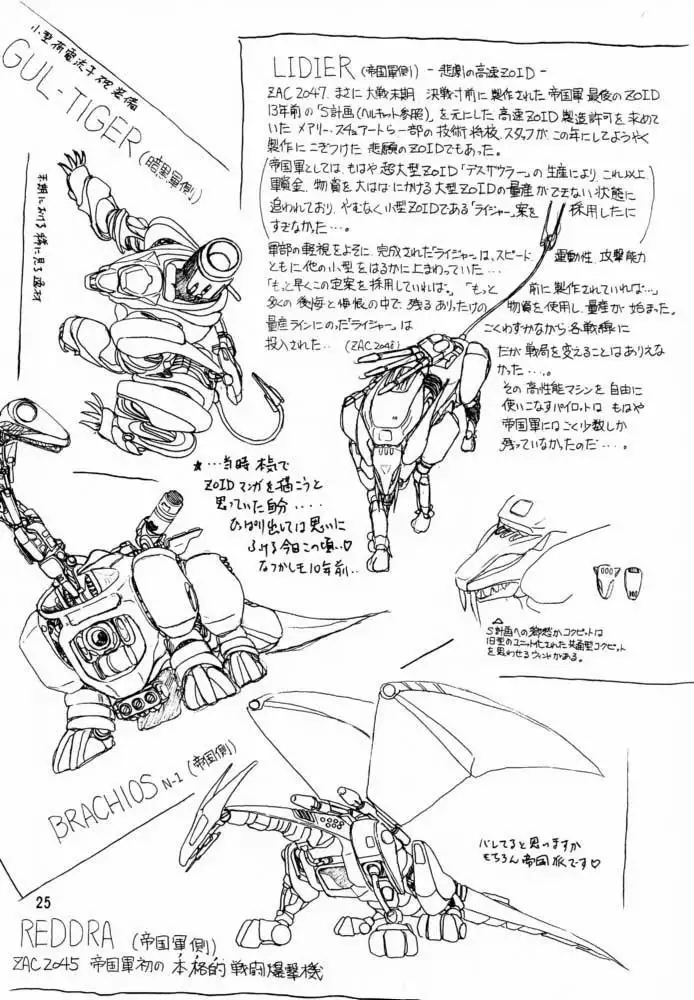 小型荷電流子砲装備
GUL-TIGER (暗黒軍側)
LIDIER (帝国軍側) - 悲劇の高速ZOID -
ZAC2047、まさに大戦末期 決戦寸前に製作された帝国軍最後のZOID
13年前の「S計画(ヘルキャット参照)」を元にした高速ZOID製造許可を求めて
いたメアリー・スチュアートら一部の技術将校、スタッフが、この年にしてようやく
製作にこぎつけた悲願のZOIDでもあった。
帝国軍としては、もはや超大型ZOID「デスザウラー」の生産により、これ以上
軍資金、物資を大はばにかける大型ZOIDの量産ができない状態に
追われており、やむなく小型ZOIDである「ライジャー」案を 採用したに
すぎなかった…。
軍部の軽視をよそに、完成された「ライジャー」は、スピード 運動性、攻撃能力
ともに他の小型をはるかに上まわっていた…
「もっと早くこの定案を採用していれば。」「もっと 前に製作されていれば…」
多くの後悔と悔恨の中で、残るありったけの 物資を使用し、量産が始まった。
量産ラインにのった「ライジャー」は ごくわずかながら各戦線に
投入された… (ZAC2048)
だが戦局を変えることはありえな
かった…。
その高性能マシンを自由に
使いこなすパイロットは もはや
帝国軍にはごく少数しか
残っていなかったのだ…。
★…当時 本気で
ZOIDマンガを描こうと
思っていた自分....
ひっぱり出しては思いに
ふける今日この頃…♡
なつかしも10年前..
S計画への郷愁かコクピットは
旧型のユニット化された共通型コクピット
を思わせるウィンドがある。
BRACHIOS N-1 (帝国側)
バレてると思いますが
もちろん帝国派です♡
25
REDDRA (帝国軍側)
ZAC2045 帝国軍初の本格的戦闘爆撃機